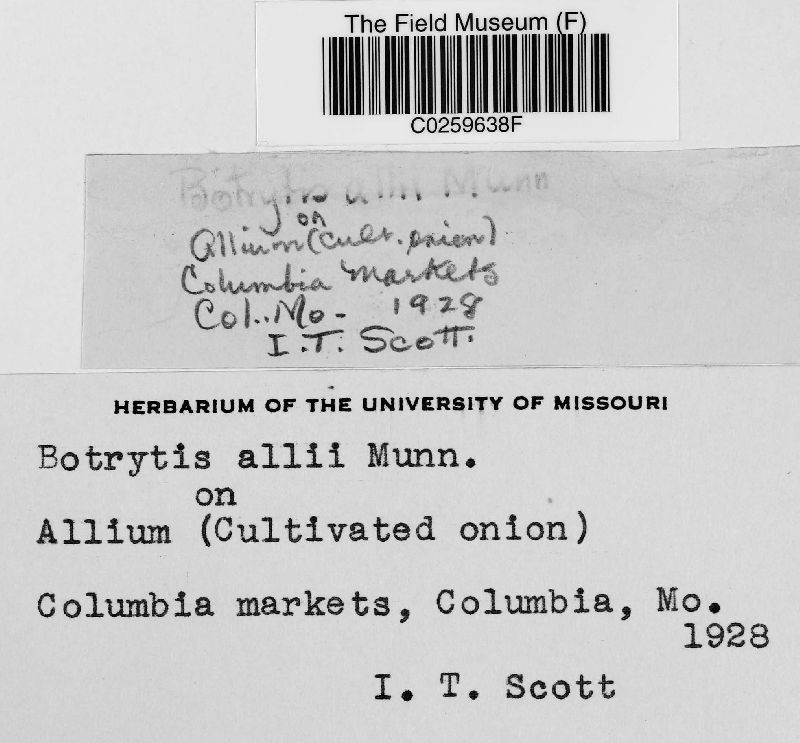 The Field Museum (F)
C0259638F
Botrytis allii Munn
on
Allium (cult. onion)
Columbia markets
Col. Mo- 1928
I.T. Scott.
HERBARIUM OF THE UNIVERSITY OF MISSOURI
Botrytis allii Munn.
on
Allium (Cultivated onion)
Columbia markets, Columbia, Mo.
1928
I. T. Scott